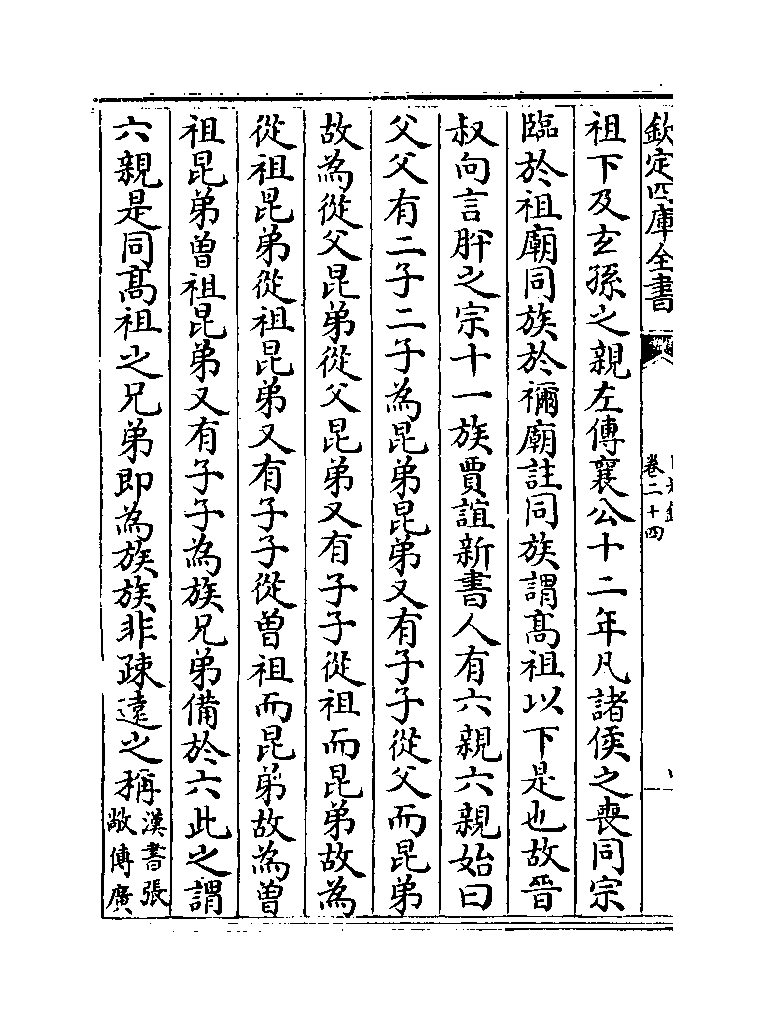 欽定四庫全書
卷二十四
祖下及玄孫之親左傳襄公十二年凡諸侯之喪同宗
臨於祖廟同族於禰廟註同族謂髙祖以下是也故晉
叔向言肸之宗十一族賈誼新書人有六親六親始曰
父父有二子二子為昆弟昆弟又有子子從父而昆弟
故為從父昆弟從父昆弟又有子子從祖而昆弟故為
從祖昆弟從祖昆弟又有子子從曽祖而昆弟故為曽
祖昆弟曽祖昆弟又有子子為族兄弟備於六此之謂
六親是同髙祖之兄弟即為族族非疎遠之稱漢書張
敞傳廣